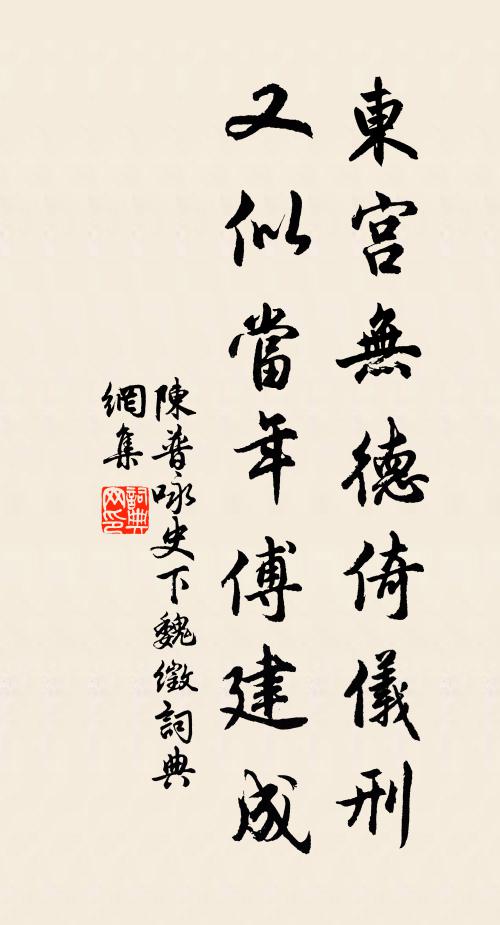 東宮無德倚儀刑
又似當年傅建成
陳普咏史下魏徵詞典
網集
詞典网印